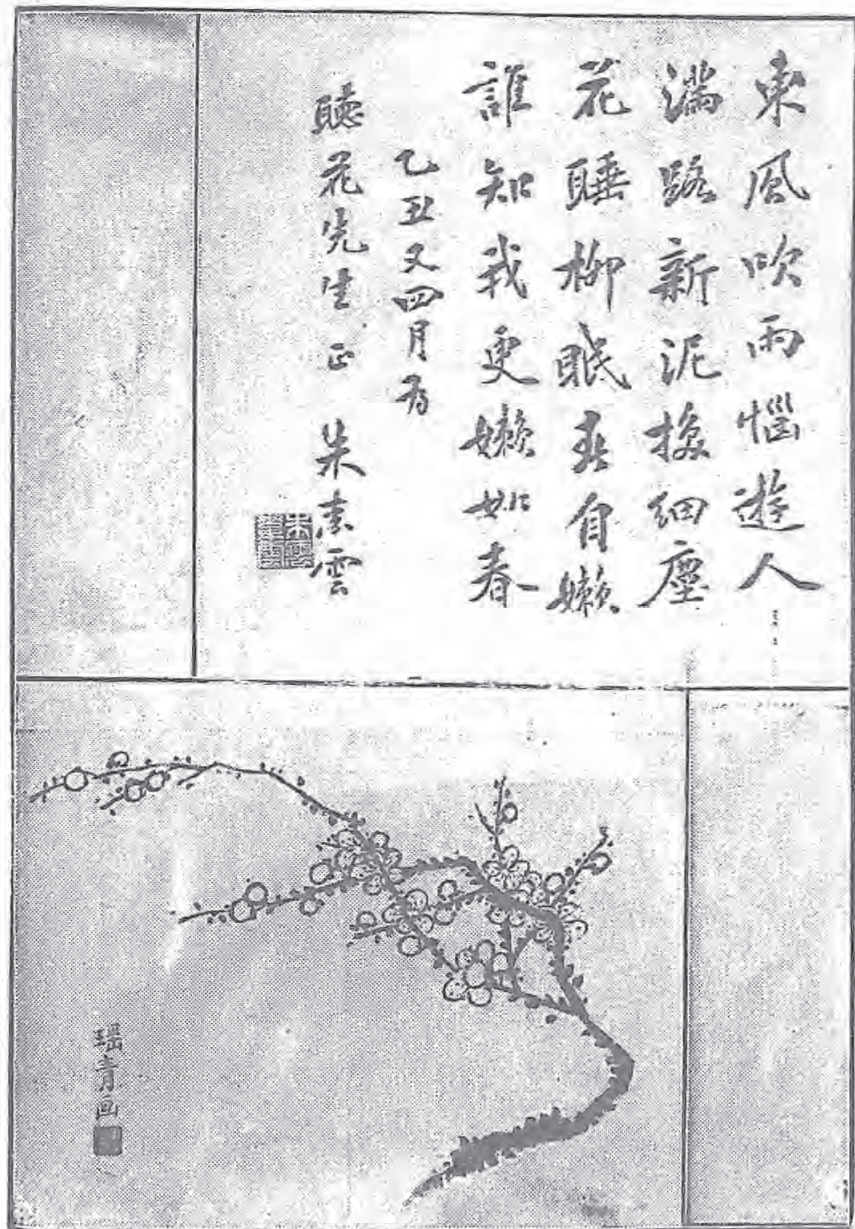 東風吹雨惱遊人
滿路新泥換細塵
花睡柳眠春自嬾
誰知我更嬾如春
乙丑又四月為
聽花先生正 朱素雲
瑶青画